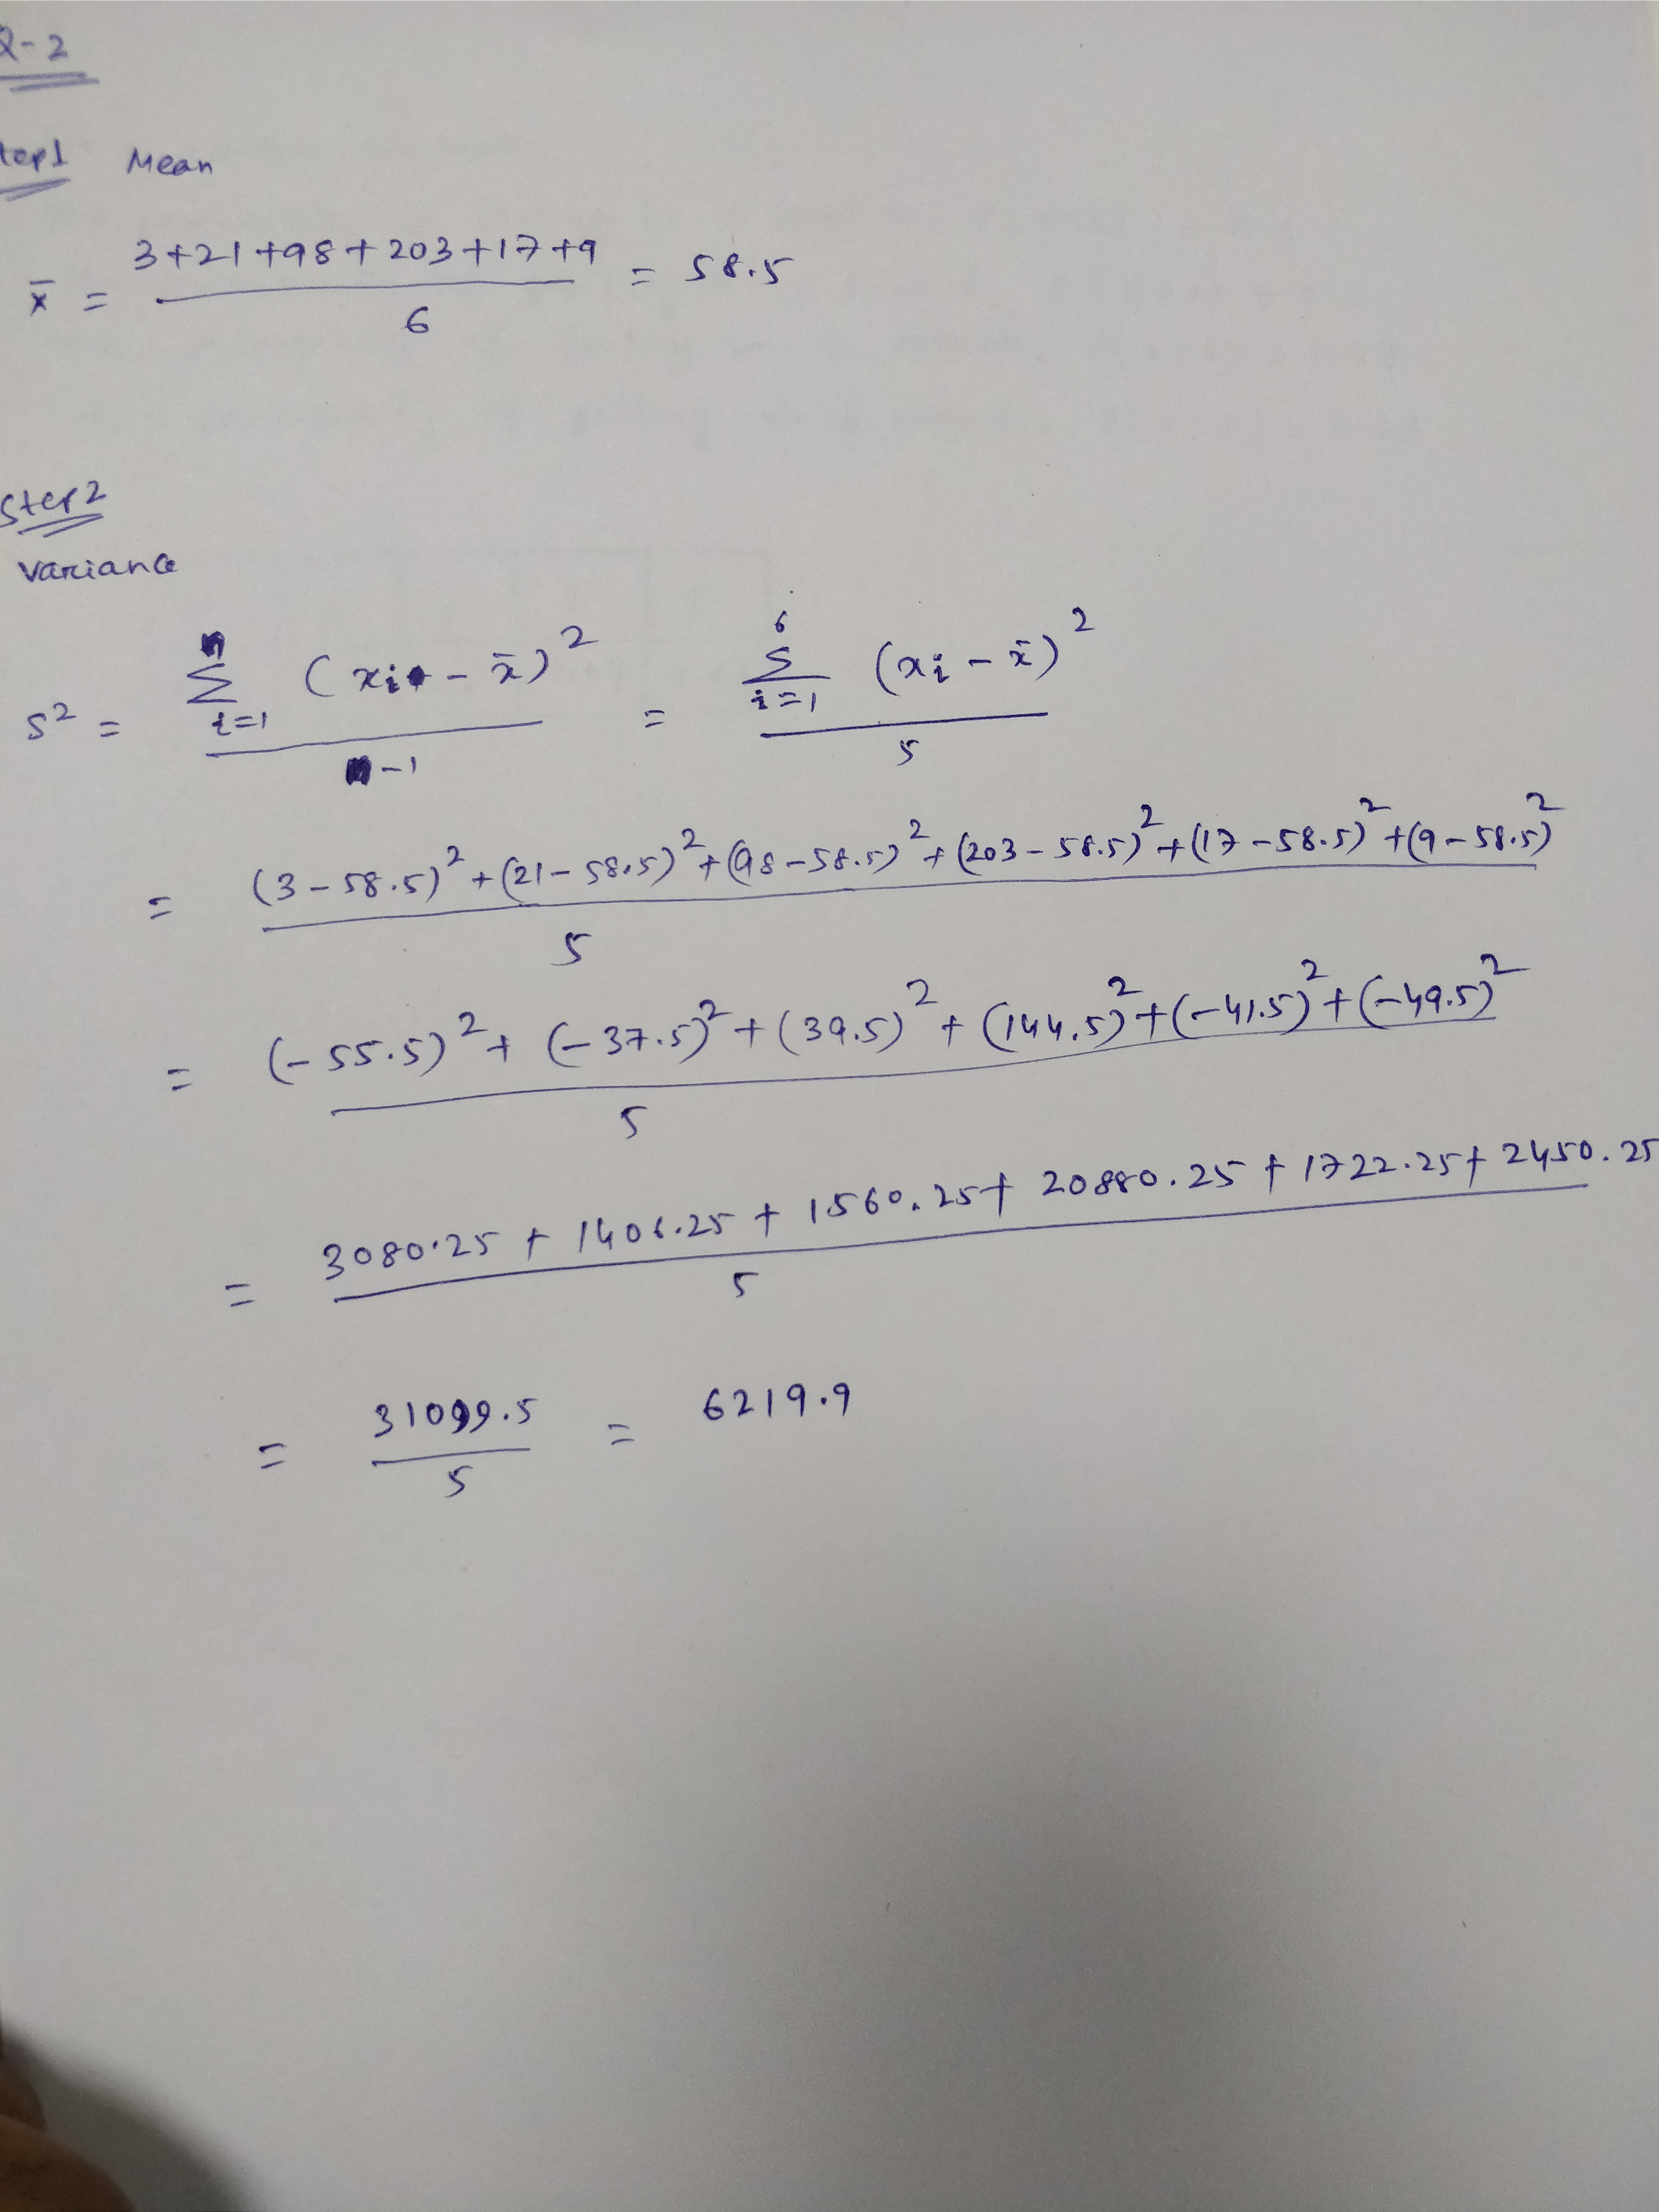 Q-2
Step1 Mean
x̄ = (3+21+98+203+17+9)/6 = 58.5
Step2
Variance
s² = Σᵢ₌₁ⁿ (xᵢ - x̄)² / (n-1) = Σᵢ₌₁⁶ (xᵢ - x̄)² / 5
= ((3-58.5)²+(21-58.5)²+(98-58.5)²+(203-58.5)²+(17-58.5)²+(9-58.5)²)/5
= ((-55.5)²+(-37.5)²+(39.5)²+(144.5)²+(-41.5)²+(-49.5)²)/5
= (3080.25+1406.25+1560.25+20880.25+1722.25+2450.25)/5
= 31099.5/5 = 6219.9